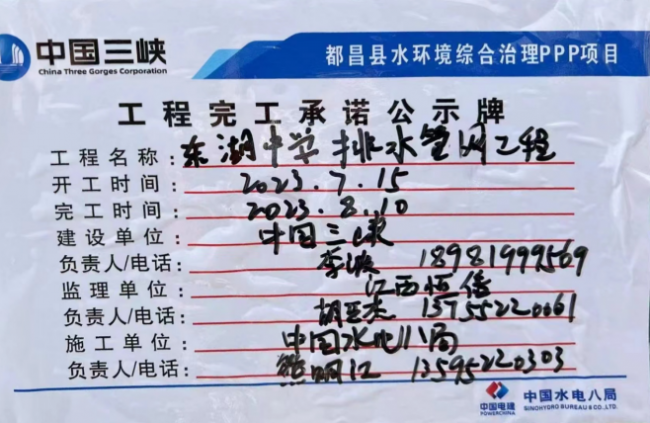 中国三峡
China Three Gorges Corporation
都昌县水环境综合治理PPP项目
工程完工承诺公示牌
工程名称：东湖中学排水管网工程
开工时间：2023.7.15
完工时间：2023.8.10
建设单位：中国三峡
负责人/电话：李 18981999569
监理单位：江西恒信
负责人/电话：胡亚杰 13755220061
施工单位：中国水电八局
负责人/电话：熊明江 13595220303
中国电建
POWERCHINA
中国水电八局
SINOHYDRO BUREAU 8 CO.,LTD.